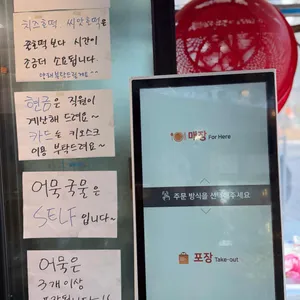 치즈호떡 씨앗호떡은
꿀호떡 보다 시간이
조금더 소요됩니다
양해부탁드릴게요~~
현금은 직원이
계산해 드려요~
카드는 키오스크
이용 부탁드려요~
어묵 국물은
SELF 입니다~
어묵은
3개 이상
매장
For Here
주문 방식을 선택해주세요
포장
Take-out